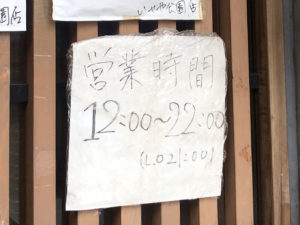 園店
いせや公園店
営業時間
12:00~22:00
(L.O21:00)